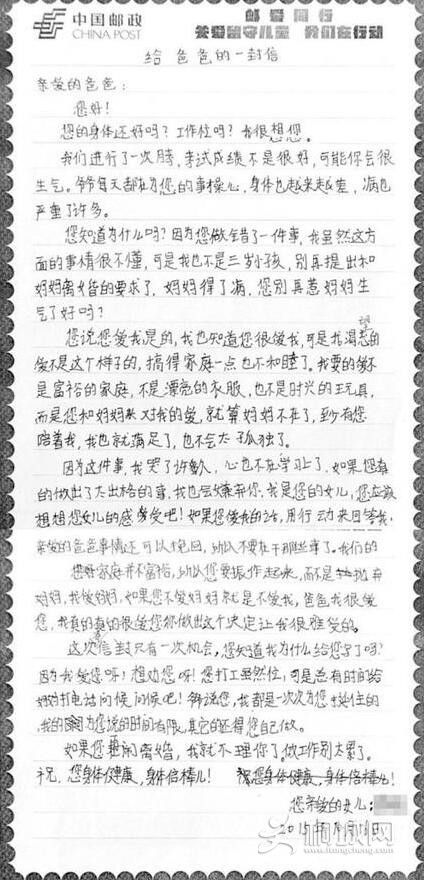 中国邮政
CHINA POST
邮爱同行
关爱留守儿童 我们在行动
给爸爸的一封信
亲爱的爸爸：
您好！
您的身体还好吗？工作忙吗？我很想您。
我们进行了一次考试，考试成绩不是很好，可能你会很
生气。爷爷每天都在为您的事操心，身体也越来越差，病也
严重了许多。
您知道为什么吗？因为您做错了一件事，我虽然这方
面的事情很不懂，可是我也不是三岁小孩，别再提出和
妈妈离婚的要求了，妈妈得了病，您别再惹妈妈生
气了好吗？
您说您爱我是的，我也知道您很爱我，可是我渴望的
爱不是这个样子的，搞得家庭一点也不和睦了。我要的爱不
是富裕的家庭，不是漂亮的衣服，也不是时兴的玩具，
而是您和妈妈对我的爱，就算妈妈不在了，至少有您
陪着我，我也就满足了，也不会太孤独了。
因为这件事，我哭了许久，心也不在学习上了，如果您真
的做出了太出格的事，我也会嫌弃你，我是您的女儿，您应该
想想您女儿的感受吧！如果您爱我的话，用行动来回答我。
亲爱的爸爸事情还可以挽回，所以不要在干那些事了。我们的
家庭并不富裕，所以您要振作起来，而不是抛弃
妈妈，我爱妈妈，如果您不爱妈妈就是不爱我，爸爸我很爱
您，我真的真的很爱您你做出这个决定让我很难受的。
这次信封只有一次机会，您知道我为什么给您写了吗？
因为我爱您呀！想劝您呀！您打工虽然忙，可是总有时间给
妈妈打电话问候问候吧！爷说您，我都是一次次为您挡住的
，我的为您说的时间有限，其它的还得您自己做。
如果您要闹离婚，我就不理你了。做工作别太累了。
祝，您身体健康，身体倍棒儿！ 祝您身体健康，身体倍棒儿！
您亲爱的女儿：
2015年
红网
hongcheng.com